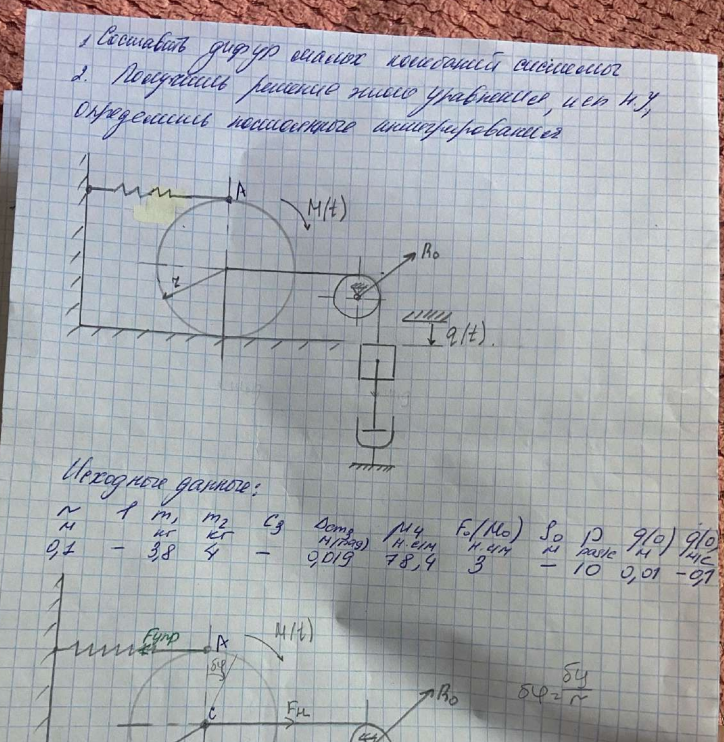 1. Составить дифур малых колебаний системы
2. Получить решение этого уравнения, исп Н.У,
определить постоянные интегрирования
A
M(t)
R₀
r
q(t).
Исходные данные:
r l m₁ m₂ C₃ μ₄ F₀(M₀) S₀ p q(0) q̇(0)
м кг кг м(рад) м м
0,1 – 3,8 4 – 0,019 78,4 3 – 10 0,01 -0,1
Fупр A M(t)
δφ
R₀
δφ = δq/r
C Fн